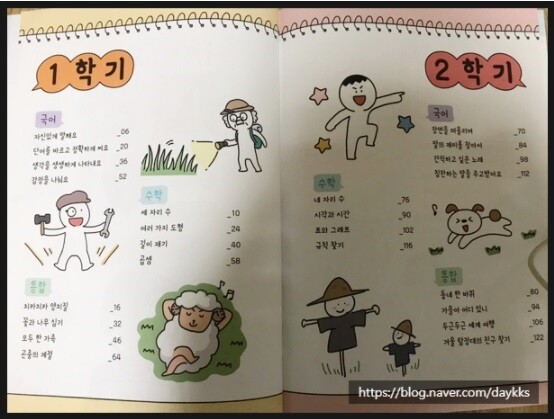 1학기
국어
자신있게 말해요 _06
단어를 바르고 정확하게 써요 _20
생각을 생생하게 나타내요 _36
감정을 나눠요 _52
수학
세 자리 수 _10
여러 가지 도형 _24
길이 재기 _40
곱셈 _58
통합
치카치카 양치질 _16
꽃과 나무 심기 _32
모두 한 가족 _46
곤충의 계절 _64
2학기
국어
장면을 떠올리며 _70
말의 재미를 찾아서 _84
간직하고 싶은 노래 _98
칭찬하는 말을 주고받아요 _112
수학
네 자리 수 _76
시각과 시간 _90
표와 그래프 _102
규칙 찾기 _116
통합
동네 한 바퀴 _80
가을아 어디 있니 _94
두근두근 세계 여행 _106
겨울 탐정대의 친구 찾기 _122
https://blog.naver.com/daykks